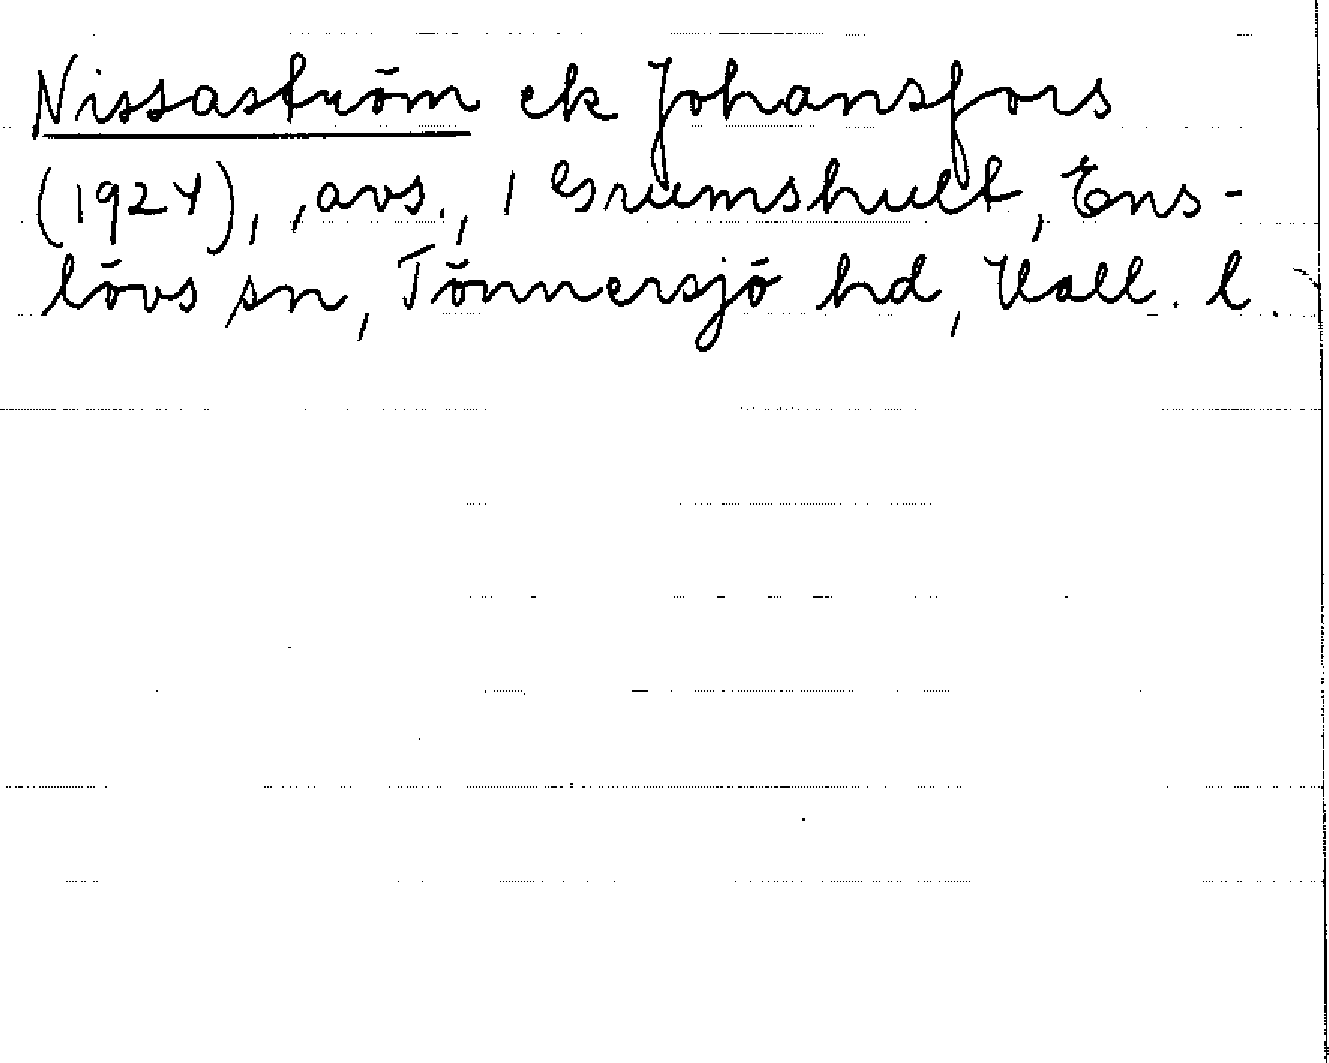 Nissaström ek Johansfors
(1924), avs., 1 Grumshult, Ens-
lövs sn, Tönnersjö hd, Hall. l.